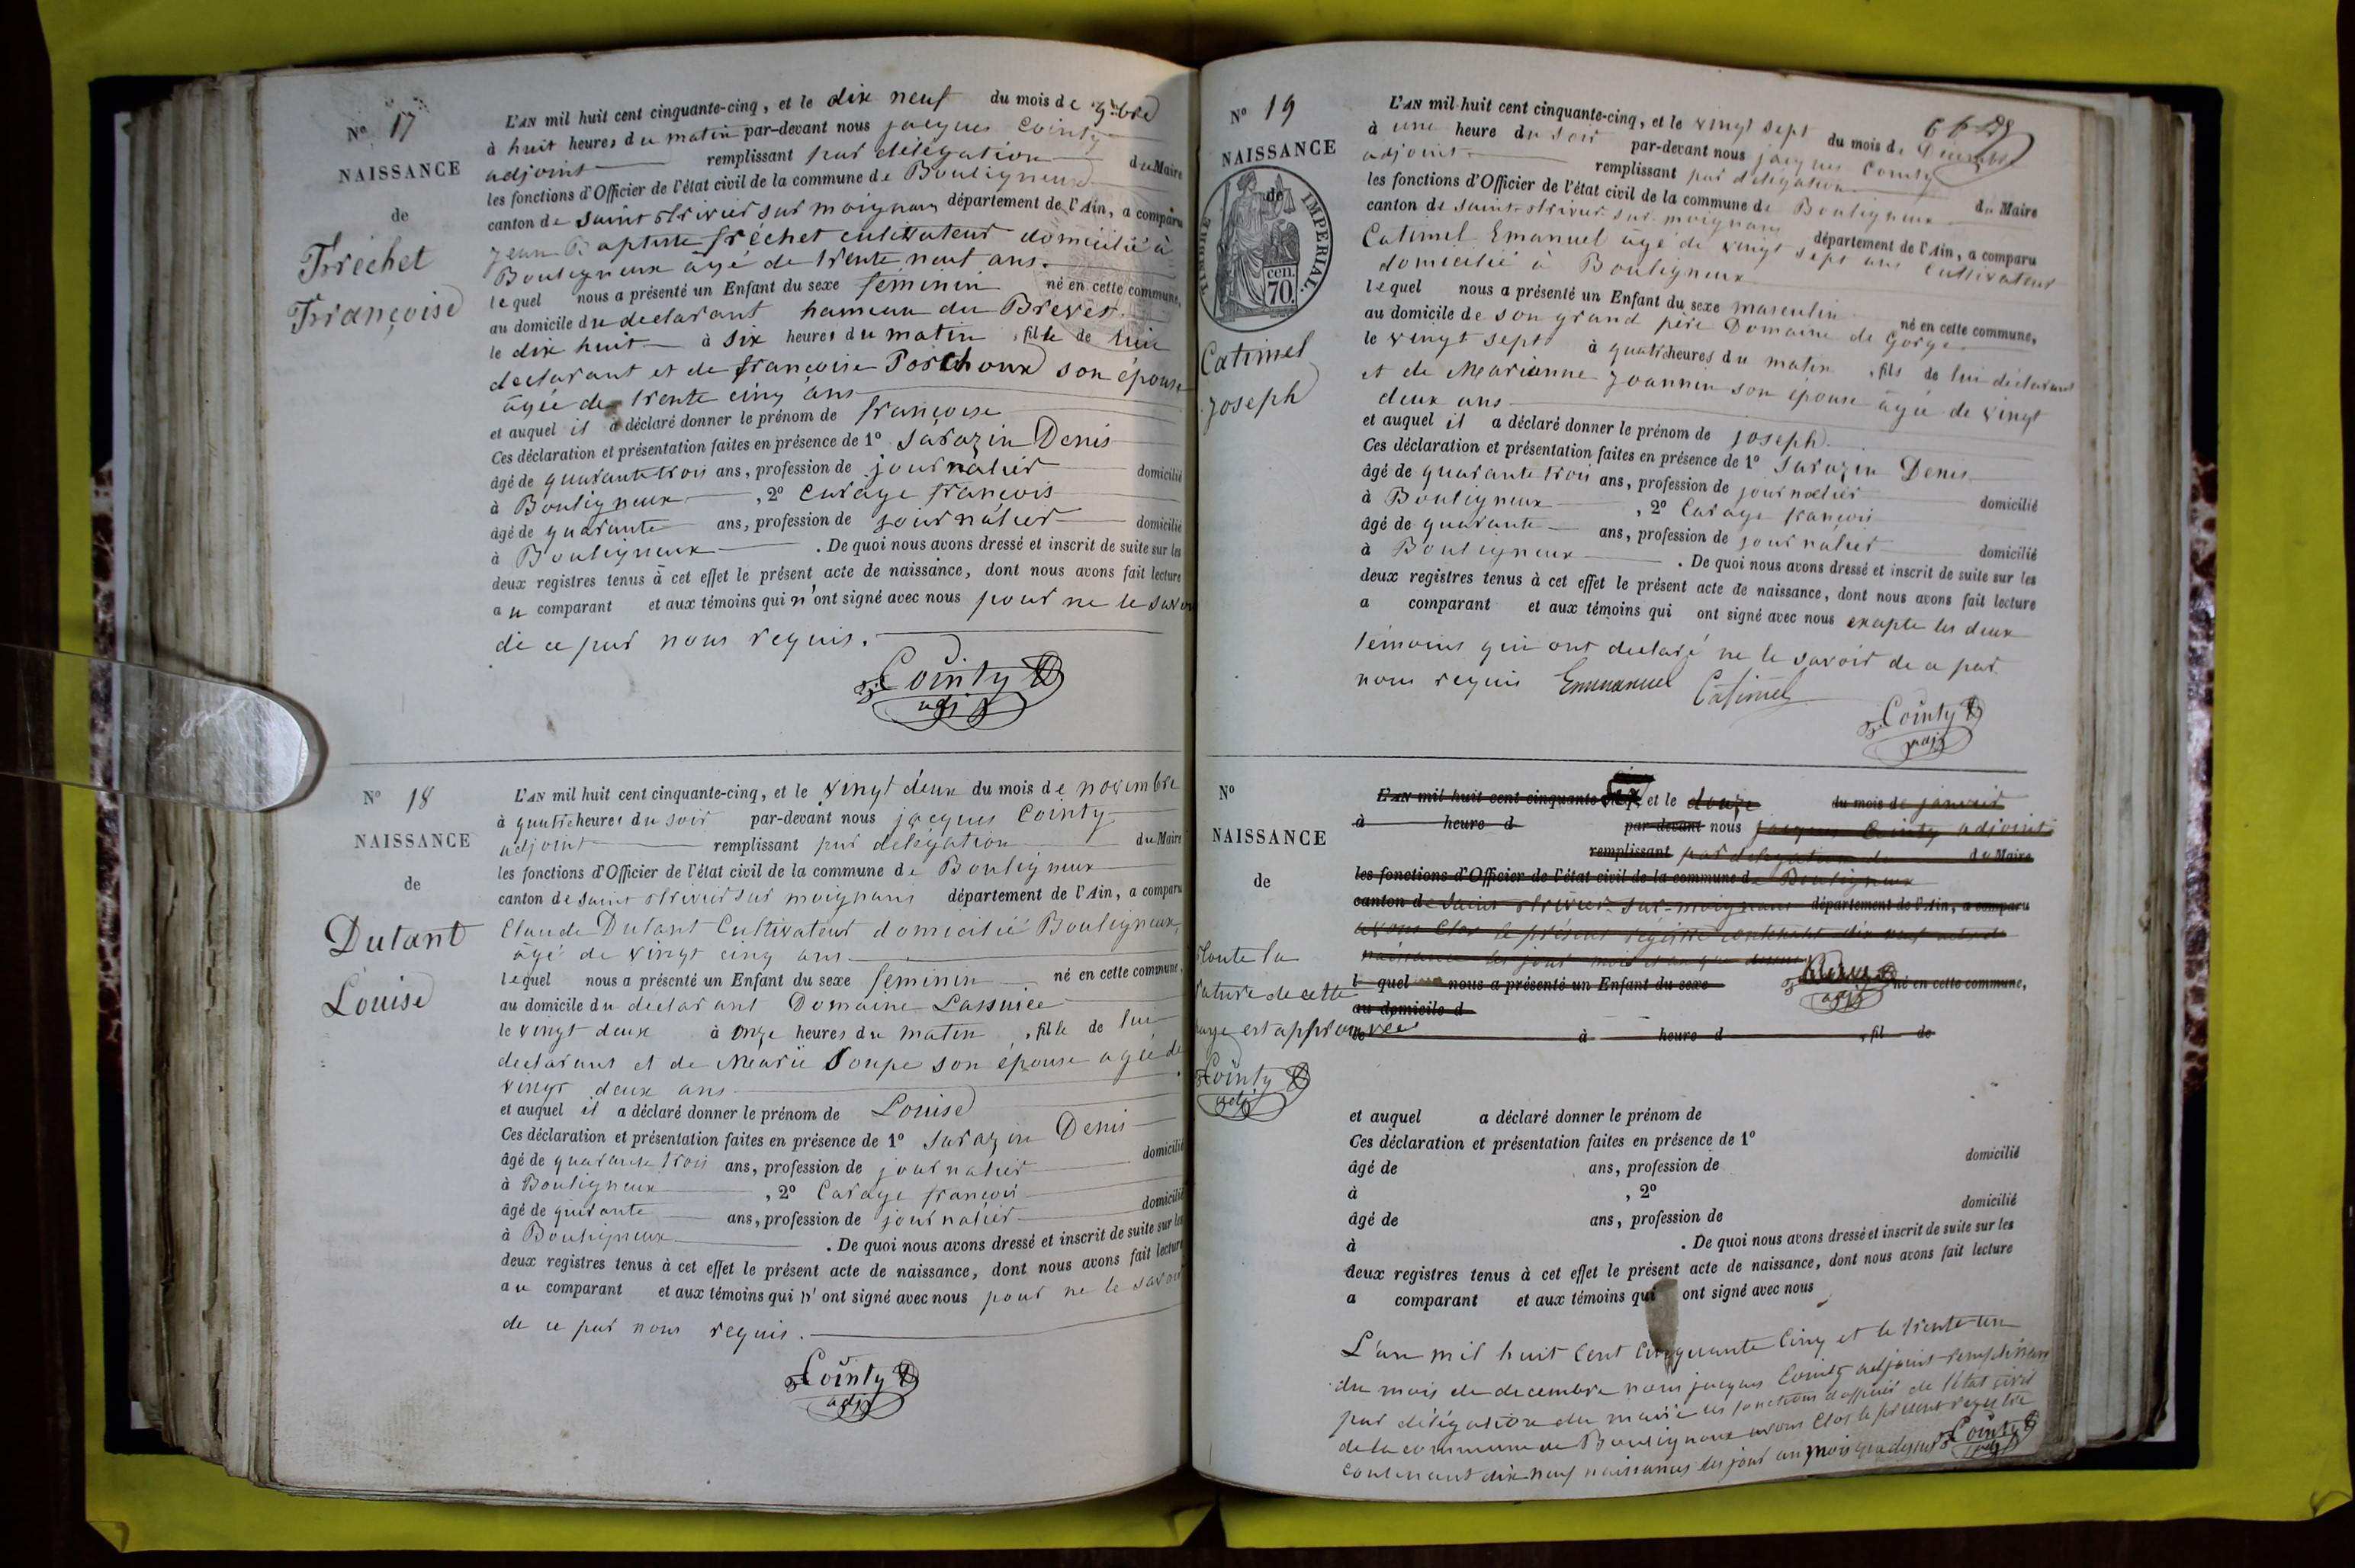 N° 17
NAISSANCE
de
Fréchet
Françoise
L'AN mil huit cent cinquante-cinq, et le dix neuf du mois de 9bre
à huit heures du matin par-devant nous jacques Cointy
adjoint remplissant par délégation du Maire
les fonctions d'Officier de l'état civil de la commune de Bouligneux
canton de saint strivier sur moignans département de l'Ain, a comparu
jean Baptiste fréchet cultivateur domicilié à
Bouligneux âgé de trente neuf ans.
lequel nous a présenté un Enfant du sexe féminin né en cette commune,
au domicile du declarant hameau du Brevet
le dix huit à six heures du matin, fille de lui
declarant et de françoise Porchoux son épouse
âgée de trente cinq ans
et auquel il a déclaré donner le prénom de françoise
Ces déclaration et présentation faites en présence de 1° Sarazin Denis
âgé de quarante trois ans, profession de journalier domicilié
à Bouligneux, 2° Curage françois
âgé de quarante ans, profession de journalier domicilié
à Bouligneux. De quoi nous avons dressé et inscrit de suite sur les
deux registres tenus à cet effet le présent acte de naissance, dont nous avons fait lecture
au comparant et aux témoins qui n'ont signé avec nous pour ne le savoir
de ce par nous requis.
Cointy
adj
N° 18
NAISSANCE
de
Dutant
Louise
L'AN mil huit cent cinquante-cinq, et le vingt deux du mois de novembre
à quatre heures du soir par-devant nous jacques Cointy
adjoint remplissant par delégation du Maire
les fonctions d'Officier de l'état civil de la commune de Bouligneux
canton de saint strivier sur moignans département de l'Ain, a comparu
Claude Dutant Cultivateur domicilié Bouligneux,
âgé de vingt cinq ans
lequel nous a présenté un Enfant du sexe féminin né en cette commune,
au domicile du declarant Domaine Lassuire
le vingt deux à onze heures du matin, fille de lui
declarant et de Marie Soupe son épouse agée de
vingt deux ans
et auquel il a déclaré donner le prénom de Louise
Ces déclaration et présentation faites en présence de 1° Sarazin Denis
âgé de quarante trois ans, profession de journalier domicilié
à Bouligneux, 2° Carage françois
âgé de quarante ans, profession de journalier domicilié
à Bouligneux. De quoi nous avons dressé et inscrit de suite sur les
deux registres tenus à cet effet le présent acte de naissance, dont nous avons fait lecture
au comparant et aux témoins qui n'ont signé avec nous pour ne le savoir
de ce par nous requis.
Cointy
adj
N° 19
NAISSANCE
de
TIMBRE IMPERIAL.
cen.
70.
Catimel
joseph
L'AN mil huit cent cinquante-cinq, et le vingt sept du mois de Décembre
à une heure du soir par-devant nous jacques Cointy
adjoint remplissant par délégation du Maire
les fonctions d'Officier de l'état civil de la commune de Bouligneux
canton de saint strivier sur moignans département de l'Ain, a comparu
Catimel Emanuel âgé de vingt sept ans Cultivateur
domicilié à Bouligneux
lequel nous a présenté un Enfant du sexe masculin né en cette commune,
au domicile de son grand père Domaine de Gorge
le vingt sept à quatre heures du matin, fils de lui déclarant
et de Marianne joannin son épouse âgée de vingt
deux ans
et auquel il a déclaré donner le prénom de joseph
Ces déclaration et présentation faites en présence de 1° Sarazin Denis
âgé de quarante trois ans, profession de journalier domicilié
à Bouligneux, 2° Carage françois
âgé de quarante ans, profession de journalier domicilié
à Bouligneux. De quoi nous avons dressé et inscrit de suite sur les
deux registres tenus à cet effet le présent acte de naissance, dont nous avons fait lecture
a comparant et aux témoins qui ont signé avec nous exapte les deux
témoins qui ont declaré ne le savoir de ce par
nous requis Emmanuel Catimel
Cointy
adj
N°
NAISSANCE
de
toute la
rature de cette
page est approuvée
Cointy
adj
L'AN mil huit cent cinquante six, et le douze du mois de janvier
à heure d par-devant nous jacques Cointy adjoint
remplissant par delegation du Maire
les fonctions d'Officier de l'état civil de la commune de Bouligneux
canton de saint strivier sur moignans département de l'Ain, a comparu
avons Clos le présent registre contenant dix neuf actes de
naissance les jour mois et an que dessus
l quel nous a présenté un Enfant du sexe né en cette commune,
au domicile d
le à heure d, fil de
et auquel a déclaré donner le prénom de
Ces déclaration et présentation faites en présence de 1°
âgé de ans, profession de domicilié
à , 2°
âgé de ans, profession de domicilié
à . De quoi nous avons dressé et inscrit de suite sur les
deux registres tenus à cet effet le présent acte de naissance, dont nous avons fait lecture
a comparant et aux témoins qui ont signé avec nous
L'an mil huit Cent Cinquante Cinq et le trente un
du mois de decembre nous jacques Cointy adjoint remplissant
par délégation du maire les fonctions d'officier de l'état civil
de la commune de Bouligneux avons Clos le présent registre
contenant dix neuf naissances les jour an mois que dessus Cointy
adj